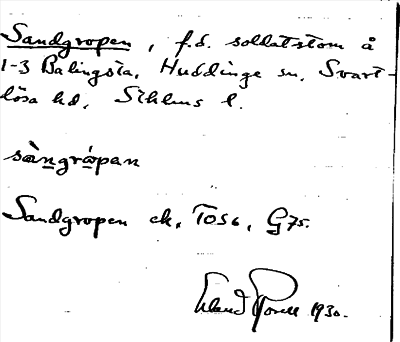 Sandgropen, f.d. soldattorp å
1-3 Balingsta, Huddinge sn, Svart-
lösa hd, Sthlms l.
sàngrópan
Sandgropen ek, TOS6, G75.
Erland Rosell 1930.